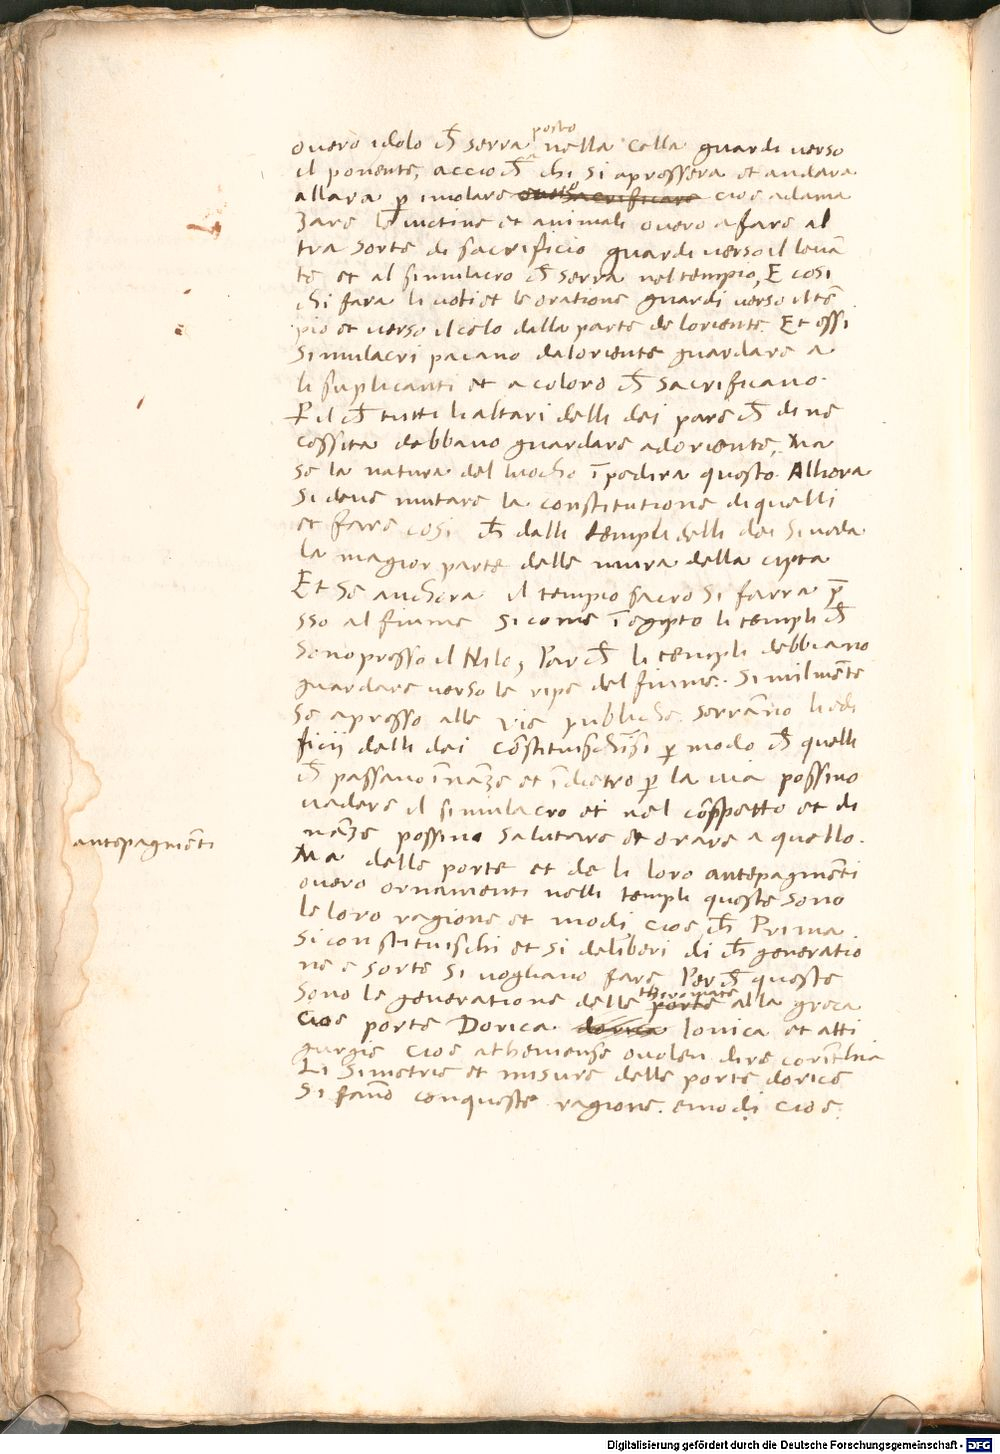 overo idolo ch̄ serra posto nella cella guardi verso
il ponente, accio ch̄ chi si apressera et andara
allara ꝑ imolare overo sacrificare cioe adama
zare le victime et animali overo a fare al
tra sorte di sacrificio guardi verso il levā
te et al simulacro ch̄ serra nel tempio, E cosi
chi fara li voti et le oratione guardi verso il tē
pio et verso il celo dalla parte de loriente. Et essi
simulacri paiano da loriente guardare a
li suplicanti et a coloro ch̄ sacrificano.
P il ch̄ tutti li altari delli dei pare ch̄ di ne
cessita debbano guardare ad oriente, Ma
se la natura del luocho īpedira questo. Alhora
si deve mutare la constitutione di quelli
et fare cosi ch̄ dalli templi delli dei si veda
la magior parte delle mura della cipta
Et se anchora il tempio sacro si farra p̄
sso al fiume sicome ī egipto li templi ch̄
sono presso il Nilo, Par ch̄ li templi debbiano
guardare verso le ripe del fiume. Similmēte
se apresso alle vie publiche serrāno li edi
ficij delli dei cōstituischīsi ꝑ modo ch̄ quelli
ch̄ passano īnāze et īdietro ꝑ la via possino
vadere il simulacro et nel cōspetto et di
nāze possino salutare et orare a quello.
antepagmēti
Ma delle porte et de li loro antepagmēti
overo ornamenti nelli templi queste sono
le loro ragione et modi, cioe ch̄ Prima
si constituischi et si deliberi di ch̄ generatio
ne e sorte si vogliano fare Per ch̄ queste
sono le generatione delle porte thiromate alla greca
cioe porte Dorica dorica Ionica et atti
gurgie cioe atheniense o volen dire corīthia
Li simetrie et misure delle porte dorice
si fāno con queste ragione. e modi cioe.
Digitalisierung gefördert durch die Deutsche Forschungsgemeinschaft - DFG